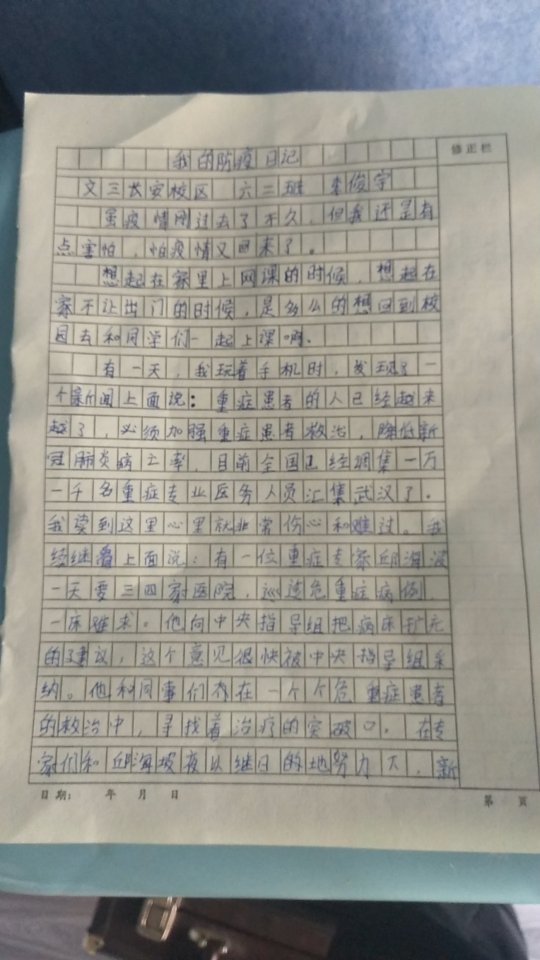 修正栏
我的防疫日记
文三长安校区 六二班 李俊宇
虽疫情刚过去了不久，但我还是有
点害怕，怕疫情又回来了。
想起在家里上网课的时候，想起在
家不让出门的时候，是多么的想回到校
园去和同学们一起上课啊。
有一天，我玩着手机时，发现了一
个新闻上面说：重症患者的人已经越来
越了，必须加强重症患者救治，降低新
冠肺炎病亡率，目前全国已经调集一万
一千多名重症专业医务人员汇集武汉了。
我读到这里心里就非常伤心和难过。我
续继看上面说：有一位重症专家邱海波
一天要三四家医院，巡诊危重症病例，
一床难求。他向中央指导组把病床扩充
的建议，这个意见很快被中央指导组采
纳。他和同事们都在一个个危重症患者
的救治中，寻找着治疗的突破口。在专
家们和邱海波夜以继日的地努力下，新
日期： 年 月 日 第 页